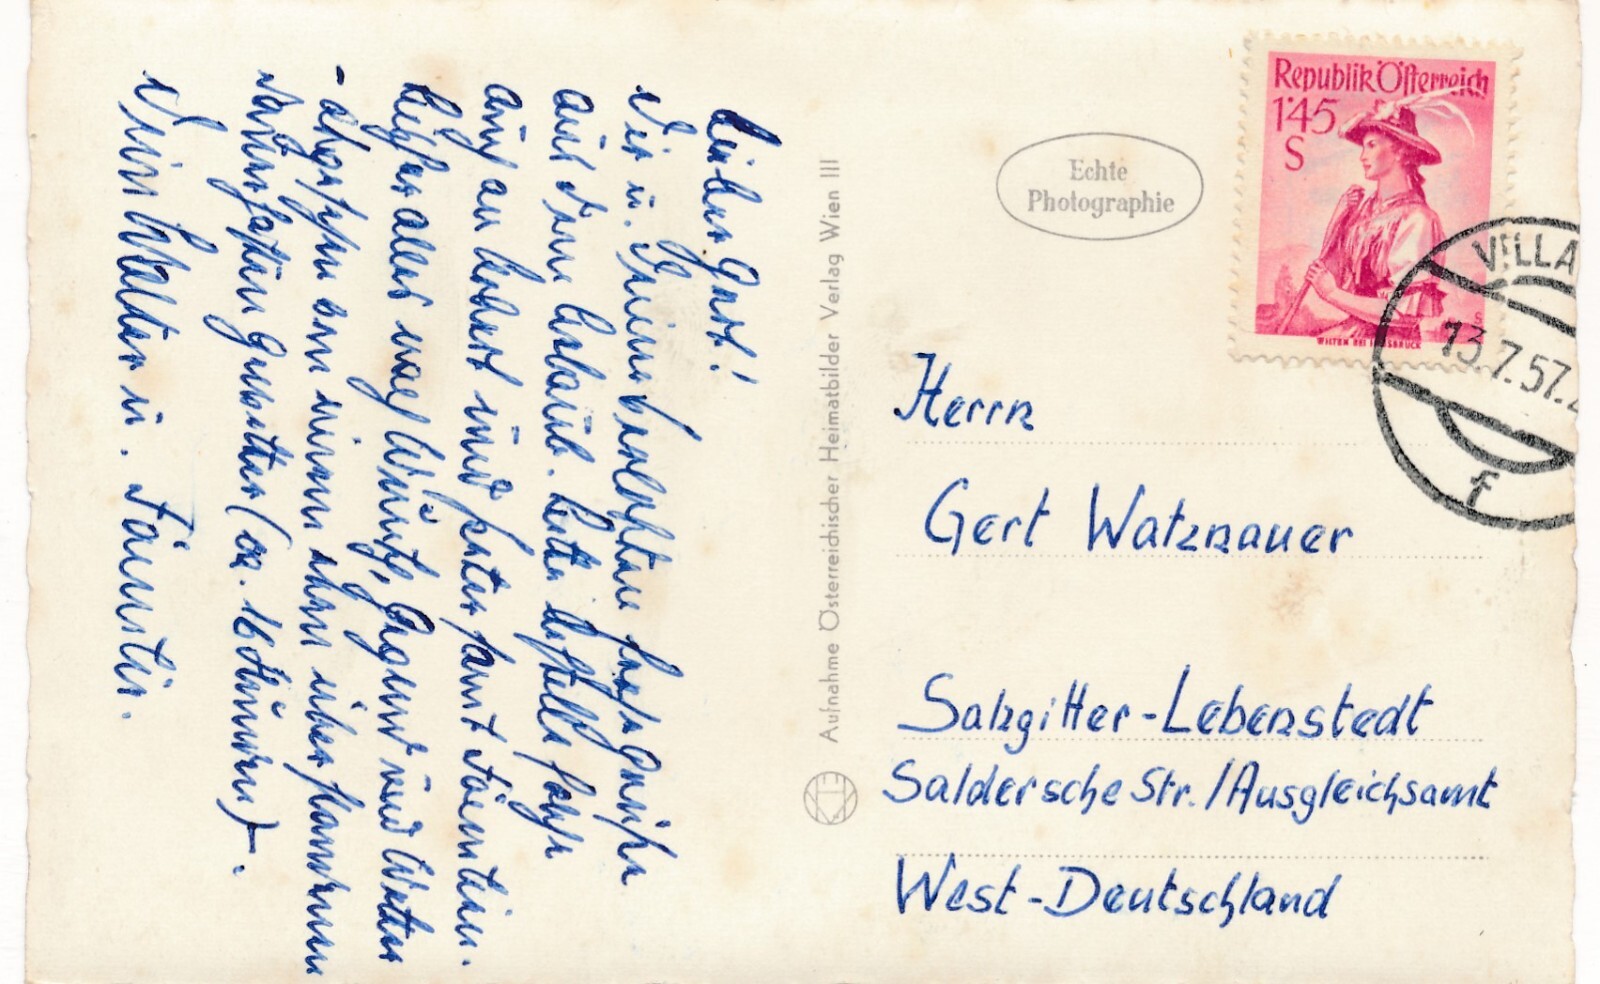 Lieber Gert!
Dir u. Deinen verehrten
aus dem Urlaub. Bitte
auch an Robert und Peter samt Familien.
Bisher alles nach Wunsch, Gegend und Wetter
- abgesehen von einem eben überstandenen
Gewitter (ca. 16 Stunden).
Dein Walter u. Familie.
Aufnahme Österreichischer Heimatbilder Verlag Wien III
Echte
Photographie
Republik Österreich
1'45
S
WILTEN BEI INNSBRUCK
VILLA
13.7.57.
f
Herrn
Gert Watznauer
Salzgitter-Lebenstedt
Saldersche Str. / Ausgleichsamt
West-Deutschland